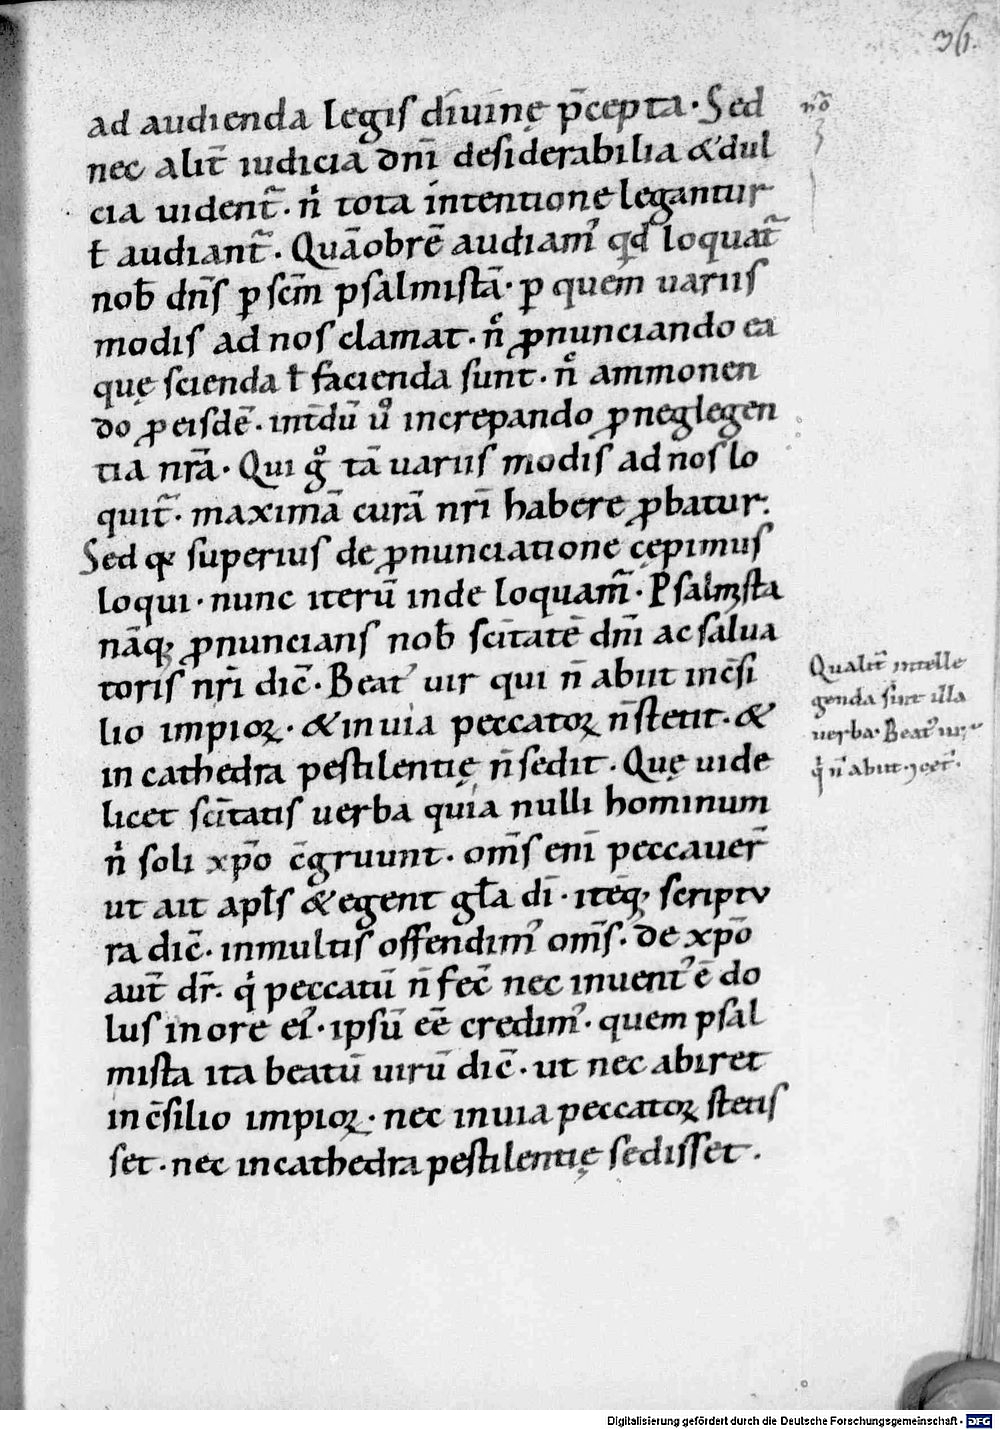 36.
ad audienda legis diuinę p̄cepta · Sed
nec alit̄ iudicia dn̄i desiderabilia & dul
cia uident᷑ · nͥ tota intentione legantur
ł audiant᷑ · Quāobrē audiamꝰ qd̄ loquat᷑
nob̄ dn̄s ꝑ sc̄m psalmistā · ꝑ quem uariis
modis ad nos clamat · n̊ ꝓnunciando ea
quę scienda ł facienda sunt · n̊ ammonen
do ꝓ eisdē · int̄dū ů increpando ꝓ neglegen
tia nr̄a · Qui g̊ tā uariis modis ad nos lo
quit᷑ · maximā curā nr̄i habere ꝓbatur:
Sed qꝛ superius de ꝓnunciatione cępimus
loqui · nunc iterū inde loquam᷑ · Psalmista
nāqꝫ ꝓnuncians nob̄ sc̄itatē dn̄i ac salua
toris nr̄i dic̄ · Beatꝰ uir qui n̄ abiit in c̄si
lio impioꝝ · & in uia peccatoꝝ n̄ stetit · &
in cathedra pestilentię n̄ sedit · Quę uide
licet sc̄itatis uerba quia nulli hominum
nͥ soli xp̄o c̄gruunt · om̄s enī peccauer̄
ut ait apłs & egent gła dī · iteqꝫ scriptu
ra dic̄ · in multis offendimꝰ om̄s · de xp̄o
aut̄ dr̄ · qͥ peccatū n̄ fec̄ nec inuentꝰ ē do
lus in ore eiꝰ · ipsū eē credimꝰ · quem psal
mista ita beatū uirū dic̄ · ut nec abiret
in c̄silio impioꝝ · nec in uia peccatoꝝ stetis
set · nec in cathedra pestilentię sedisset ·
Qualit̄ intelle
genda sint illa
uerba · Beatꝰ uir
qͥ n̄ abiit · ⁊ cet̄ ·
Digitalisierung gefördert durch die Deutsche Forschungsgemeinschaft - DFG